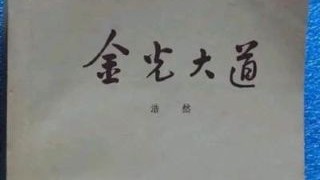 金光大道
浩然